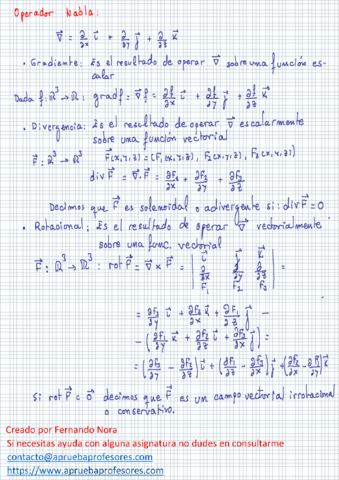 Operador Nabla:
∇⃗ = ∂/∂x i⃗ + ∂/∂y j⃗ + ∂/∂z k⃗
• Gradiente: Es el resultado de operar ∇⃗ sobre una función es-
calar
Dada f: ℝ³ → ℝ: grad f = ∇⃗f = ∂f/∂x i⃗ + ∂f/∂y j⃗ + ∂f/∂z k⃗
• Divergencia: Es el resultado de operar ∇⃗ escalarmente
sobre una función vectorial
F⃗: ℝ³ → ℝ³ F⃗(x,y,z) = (F₁(x,y,z), F₂(x,y,z), F₃(x,y,z))
div F⃗ = ∇⃗·F⃗ = ∂F₁/∂x + ∂F₂/∂y + ∂F₃/∂z
Decimos que F⃗ es solenoidal o adivergente si: div F⃗ = 0
• Rotacional: Es el resultado de operar ∇⃗ vectorialmente
sobre una func. vectorial
F⃗: ℝ³ → ℝ³: rot F⃗ = ∇⃗ × F⃗ = | i⃗ j⃗ k⃗ |
| ∂/∂x ∂/∂y ∂/∂z | =
| F₁ F₂ F₃ |
= ∂F₃/∂y i⃗ + ∂F₂/∂x k⃗ + ∂F₁/∂z j⃗ -
- (∂F₁/∂y k⃗ + ∂F₂/∂z i⃗ + ∂F₃/∂x j⃗) =
= (∂F₃/∂y - ∂F₂/∂z) i⃗ + (∂F₁/∂z - ∂F₃/∂x) j⃗ + (∂F₂/∂x - ∂F₁/∂y) k⃗
Si rot F⃗ = 0⃗ decimos que F⃗ es un campo vectorial irrotacional
o conservativo.
Creado por Fernando Nora
Si necesitas ayuda con alguna asignatura no dudes en consultarme
contacto@apruebaprofesores.com
https://www.apruebaprofesores.com